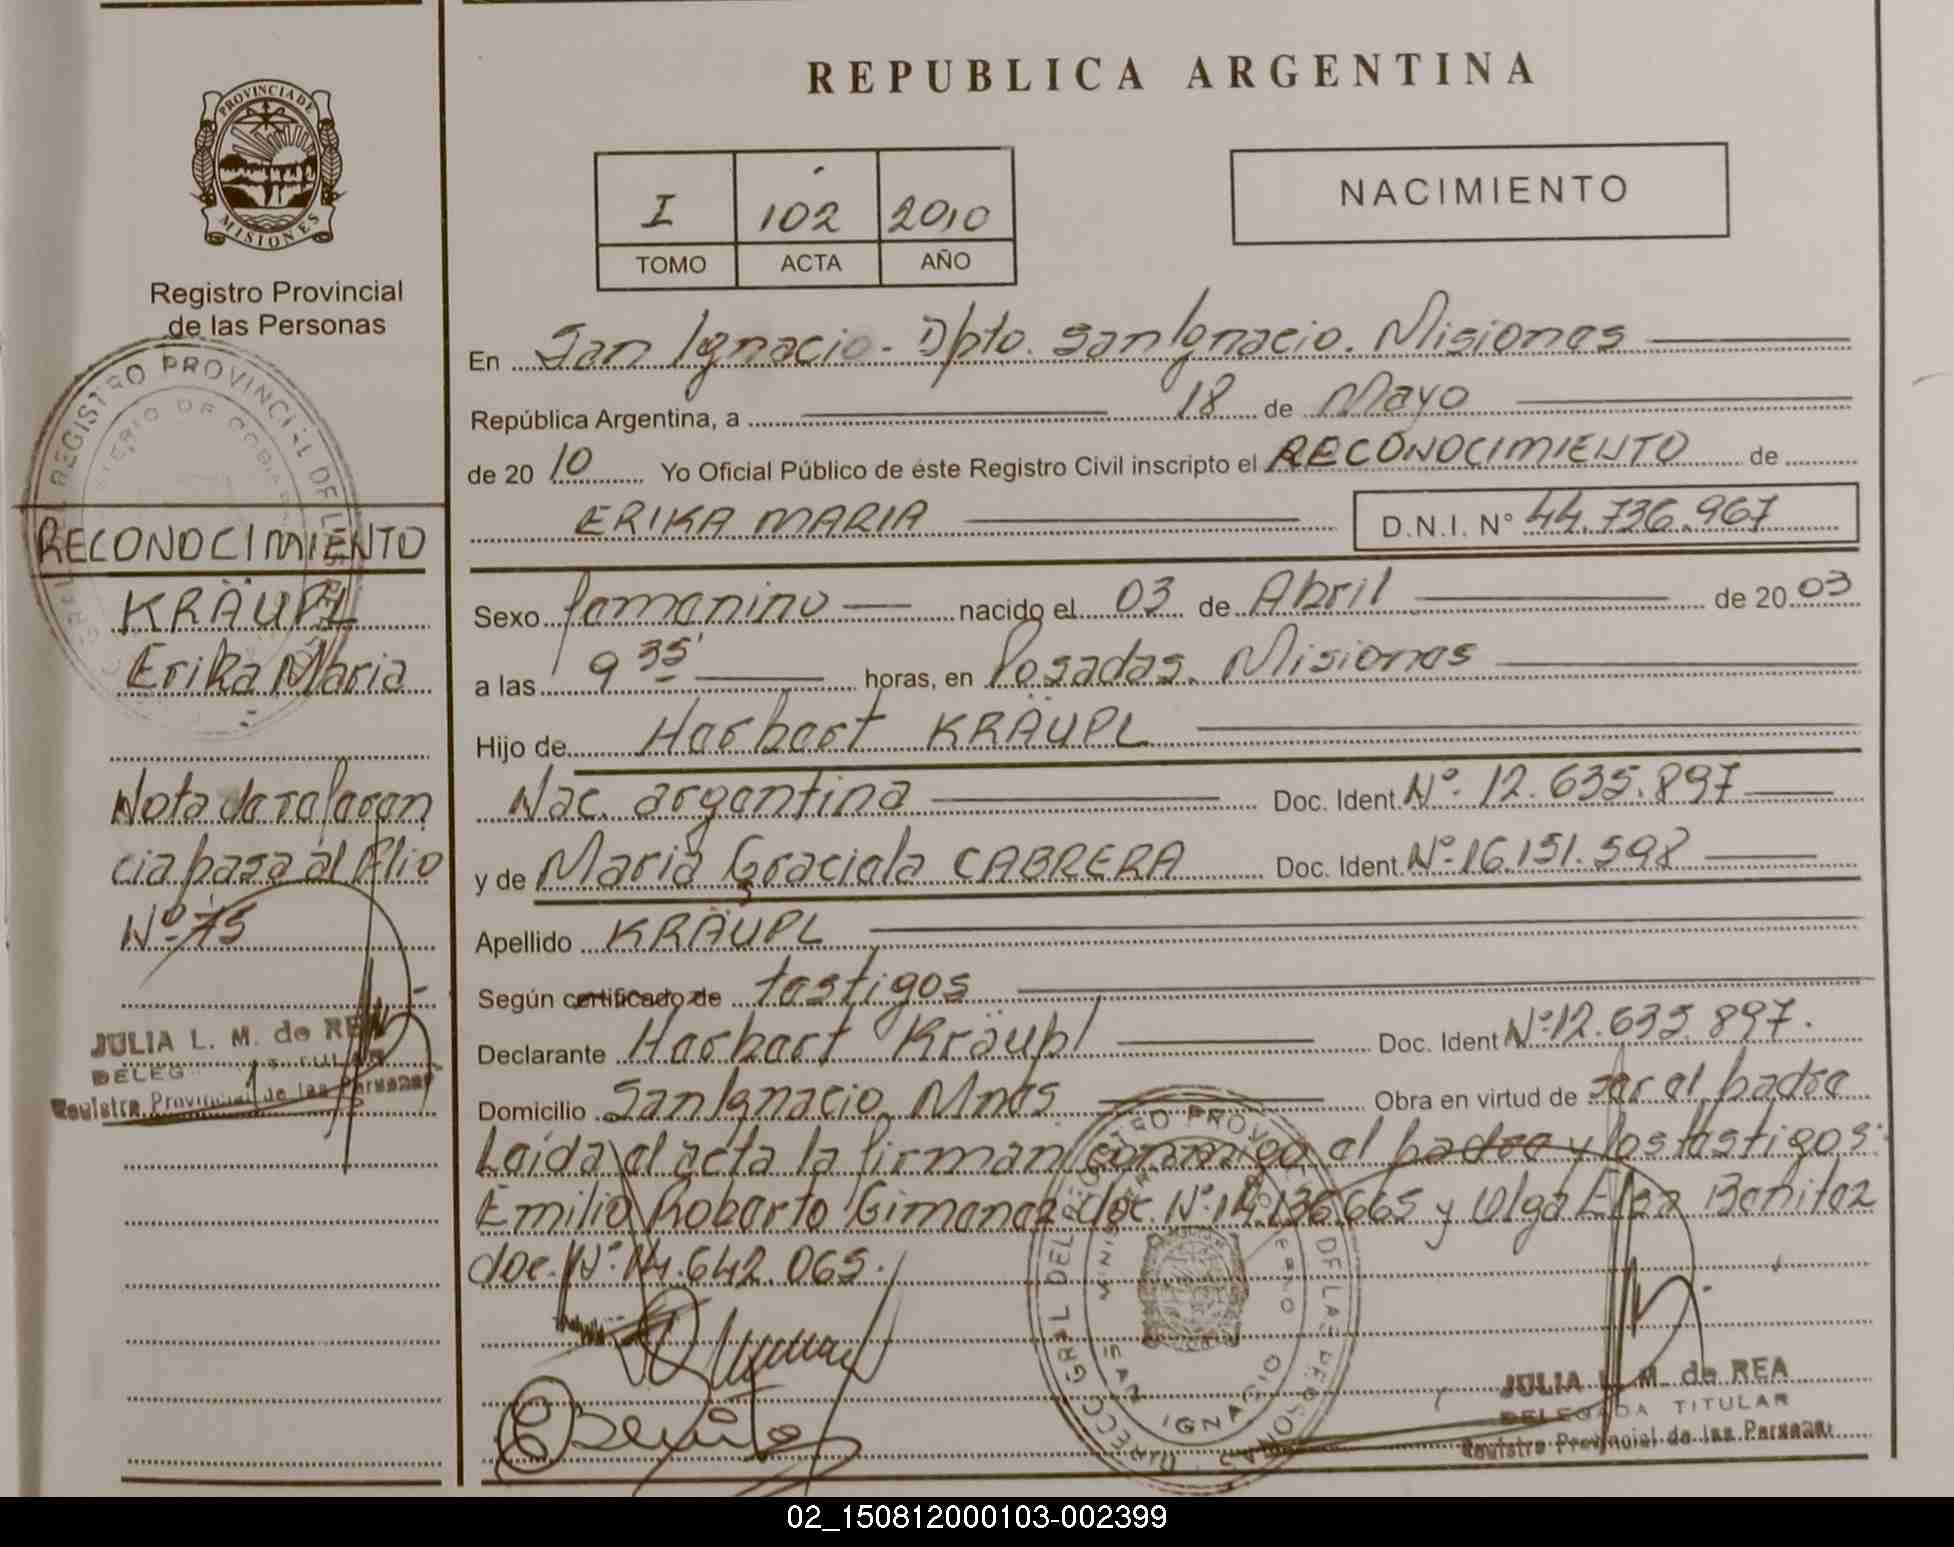 REPUBLICA ARGENTINA
PROVINCIA DE
MISIONES
Registro Provincial
de las Personas
I 102 2010
TOMO ACTA AÑO
NACIMIENTO
En San Ignacio - Dpto. San Ignacio. Misiones
República Argentina, a 18 de Mayo
de 2010 Yo Oficial Público de éste Registro Civil inscripto el RECONOCIMIENTO de
ERIKA MARIA D.N.I. N° 44.736.967
Sexo femenino nacido el 03 de Abril de 2003
a las 9 35' horas, en Posadas. Misiones
Hijo de Herbert KRÄUPL
Nac. argentina Doc. Ident. Nº 12.635.897
y de Maria Graciela CABRERA Doc. Ident. Nº 16.151.598
Apellido KRÄUPL
Según certificado de testigos
Declarante Herbert Kräupl Doc. Ident Nº 12.635.897.
Domicilio San Ignacio, Mnes Obra en virtud de ser el padre
Leída el acta la firman conmigo el padre y los testigos:
Emilio Roberto Gimenez doc. Nº 14.136.665 y Olga Elsa Benitez
doc. Nº 14.642.065.
JULIA L. M. de REA
DELEGADA TITULAR
Registro Provincial de las Personas
RECONOCIMIENTO
KRÄUPL
Erika Maria
Nota de referen
cia pasa al folio
Nº 75
JULIA L. M. de REA
DELEG TITULAR
Registro Provincial de las Personas
REGISTRO PROVINCIAL DE LAS
SAN IGNACIO
02_150812000103-002399